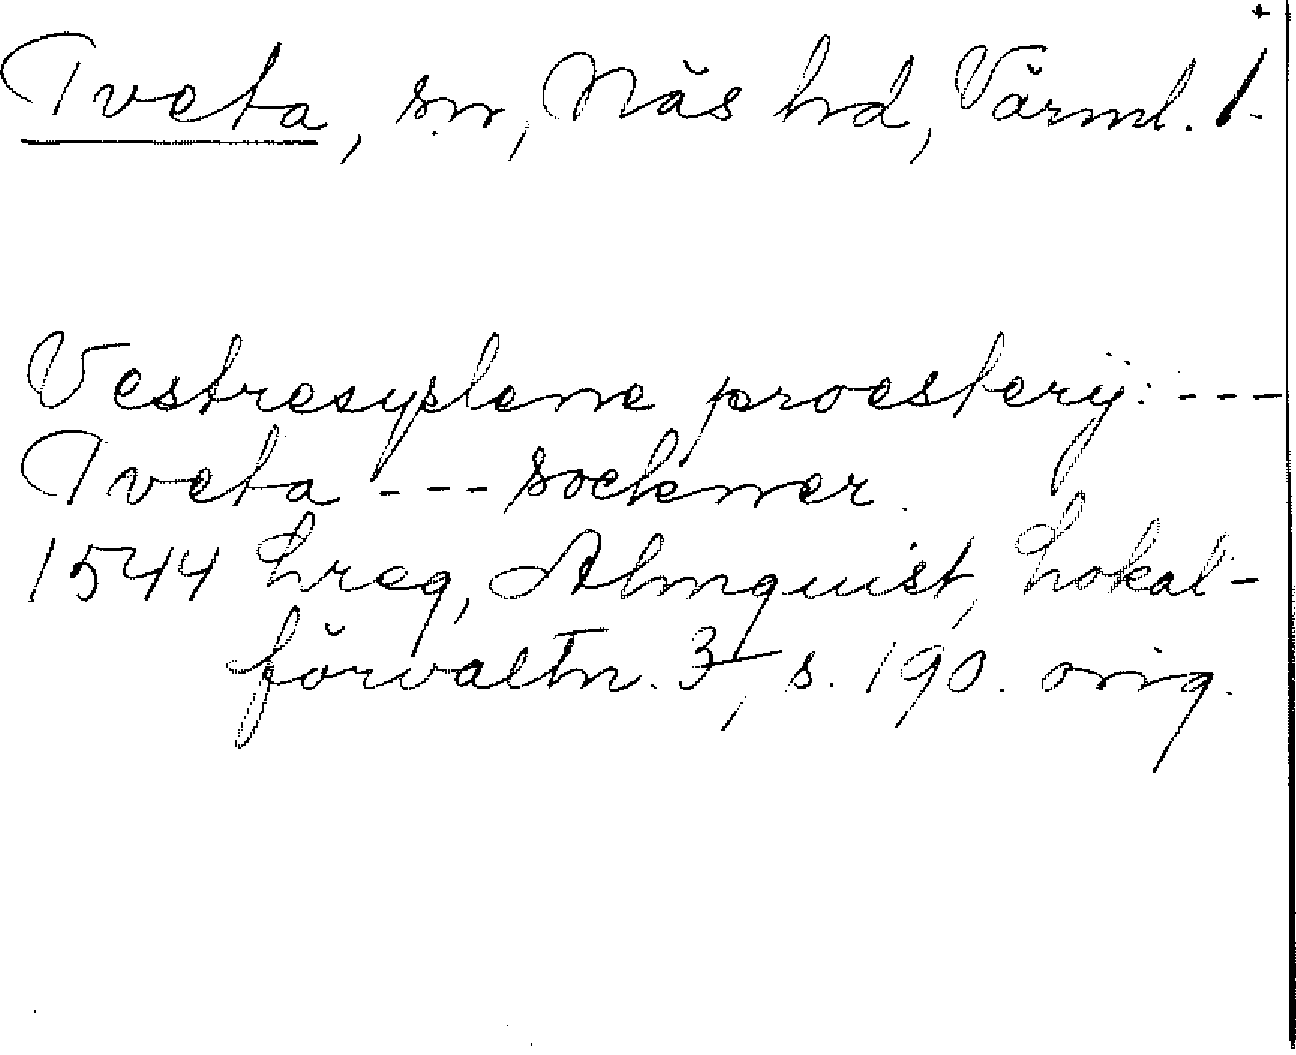 Tveta, sn, Näs hd, Värml. l.
Vestresyslene proesterij: ---
Tveta --- sockner.
1544 Lreg, Almquist, Lokal-
förvaltn. 3, s. 190. orig.